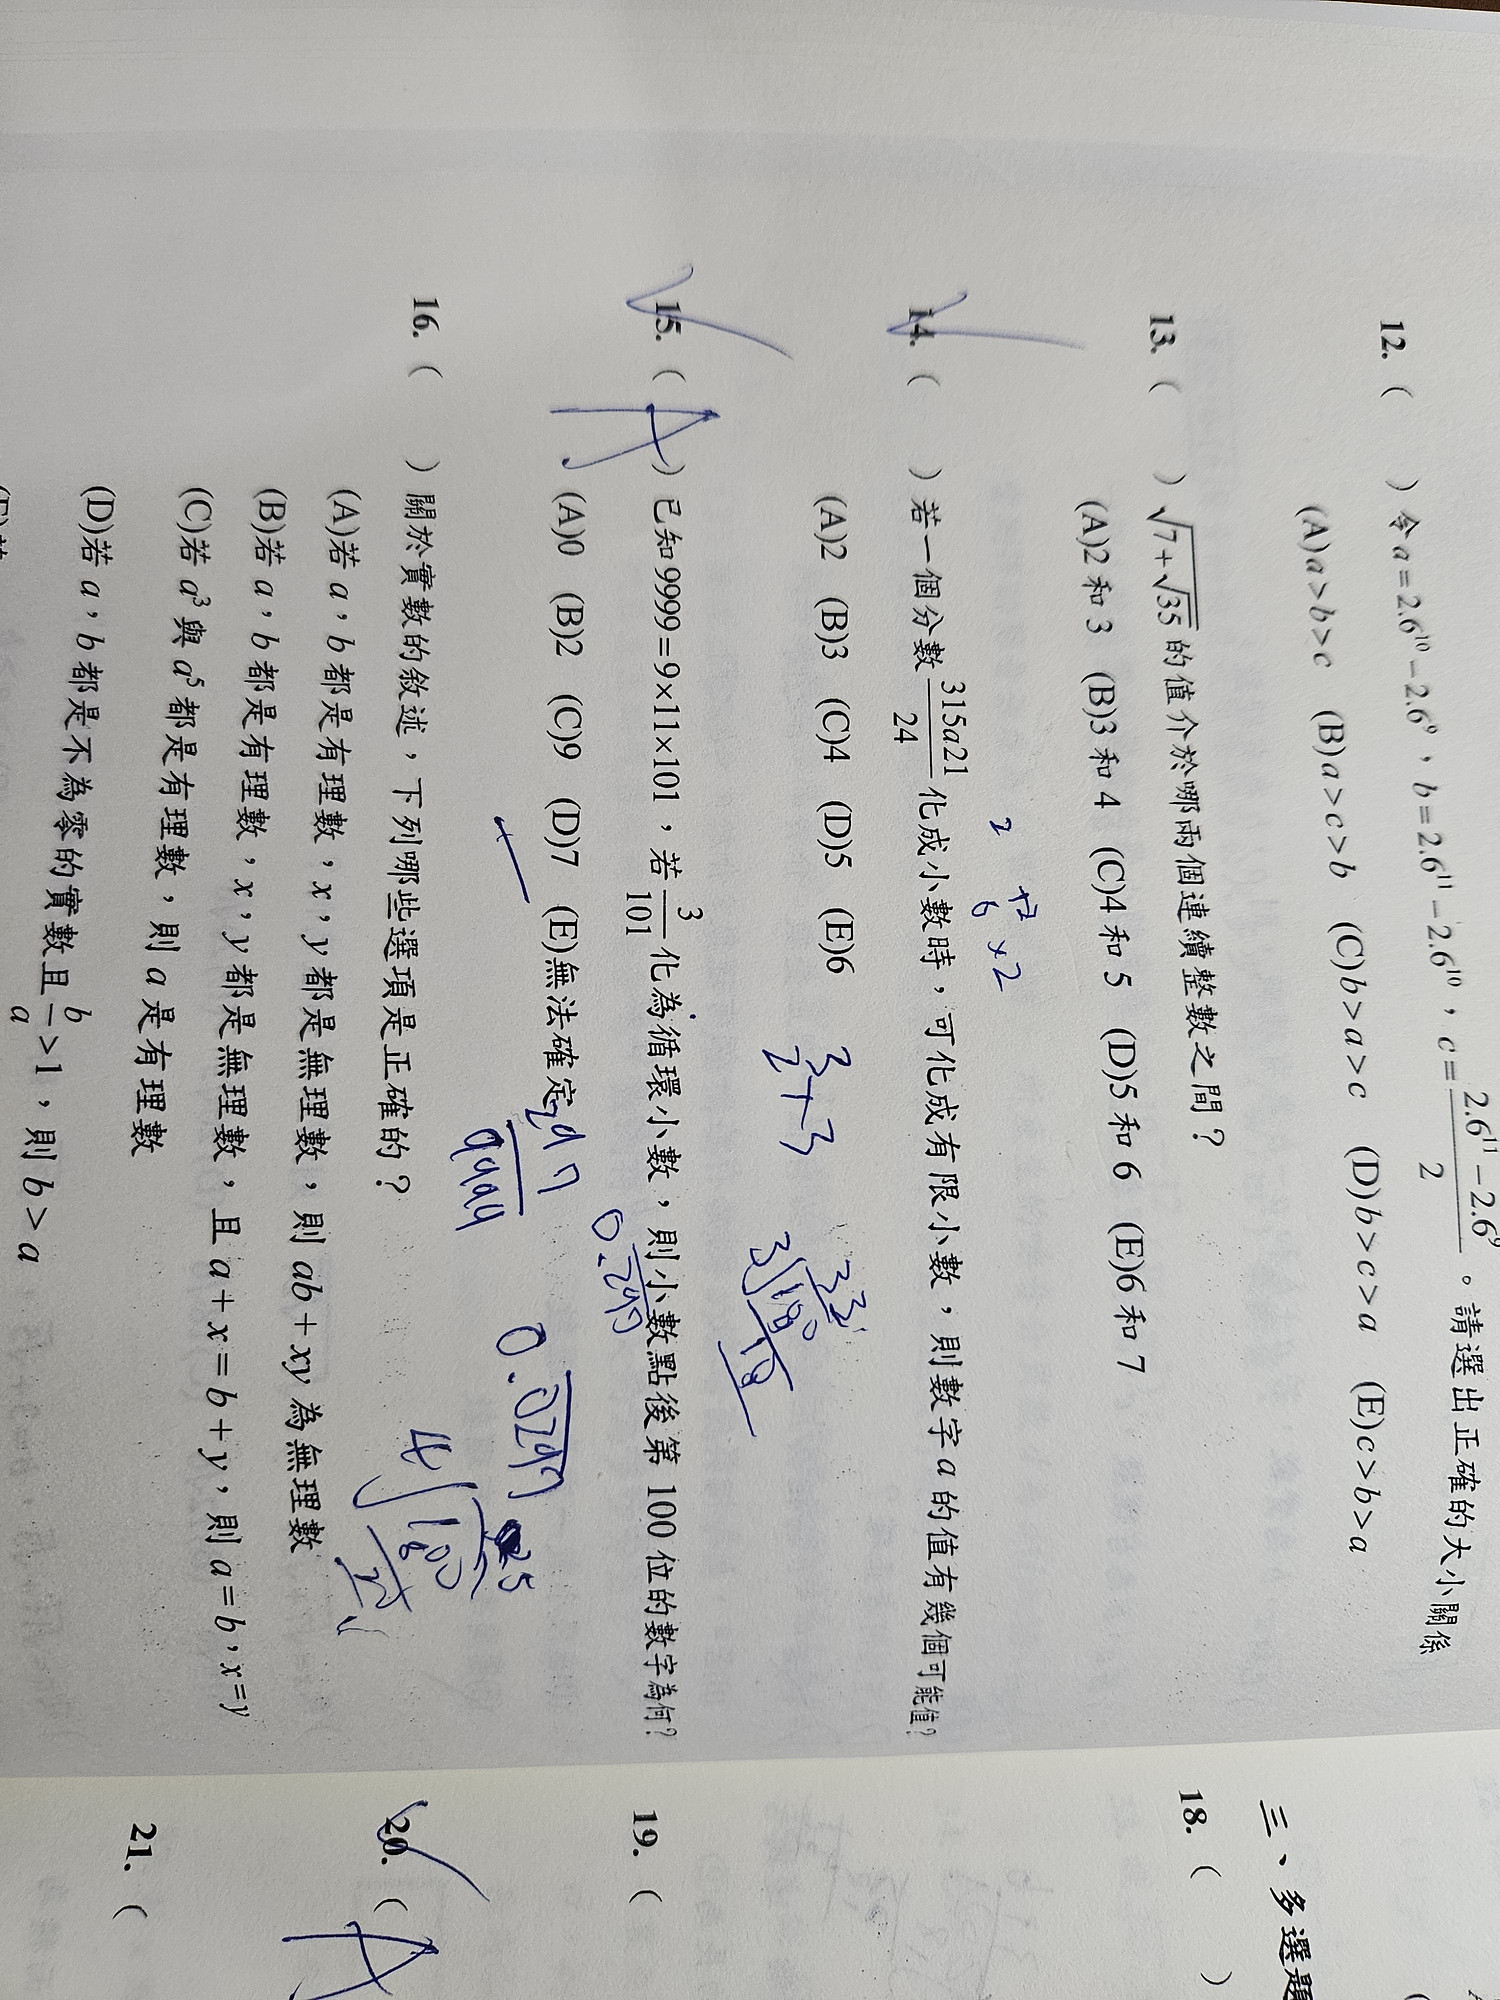 12. (    ) 令 a=2.6¹⁰−2.6⁹，b=2.6¹¹−2.6¹⁰，c=(2.6¹¹−2.6⁹)/2。請選出正確的大小關係
(A)a>b>c (B)a>c>b (C)b>a>c (D)b>c>a (E)c>b>a
13. (    ) √(7+√35) 的值介於哪兩個連續整數之間？
(A)2 和 3 (B)3 和 4 (C)4 和 5 (D)5 和 6 (E)6 和 7
14. (    ) 若一個分數 315a21/24 化成小數時，可化成有限小數，則數字 a 的值有幾個可能值？
(A)2 (B)3 (C)4 (D)5 (E)6
3
2+3
33
3 100
15. ( A ) 已知 9999=9×11×101，若 3/101 化為循環小數，則小數點後第 100 位的數字為何？
0.297
(A)0 (B)2 (C)9 (D)7 (E)無法確定
297/9999
0.0297
25
4 100
16. (    ) 關於實數的敘述，下列哪些選項是正確的？
(A)若 a，b 都是有理數，x，y 都是無理數，則 ab+xy 為無理數
(B)若 a，b 都是有理數，x，y 都是無理數，且 a+x=b+y，則 a=b，x=y
(C)若 a³ 與 a⁵ 都是有理數，則 a 是有理數
(D)若 a，b 都是不為零的實數且 b/a>1，則 b>a
三、多選題
18. (    )
19. (
20. ( A
21. (